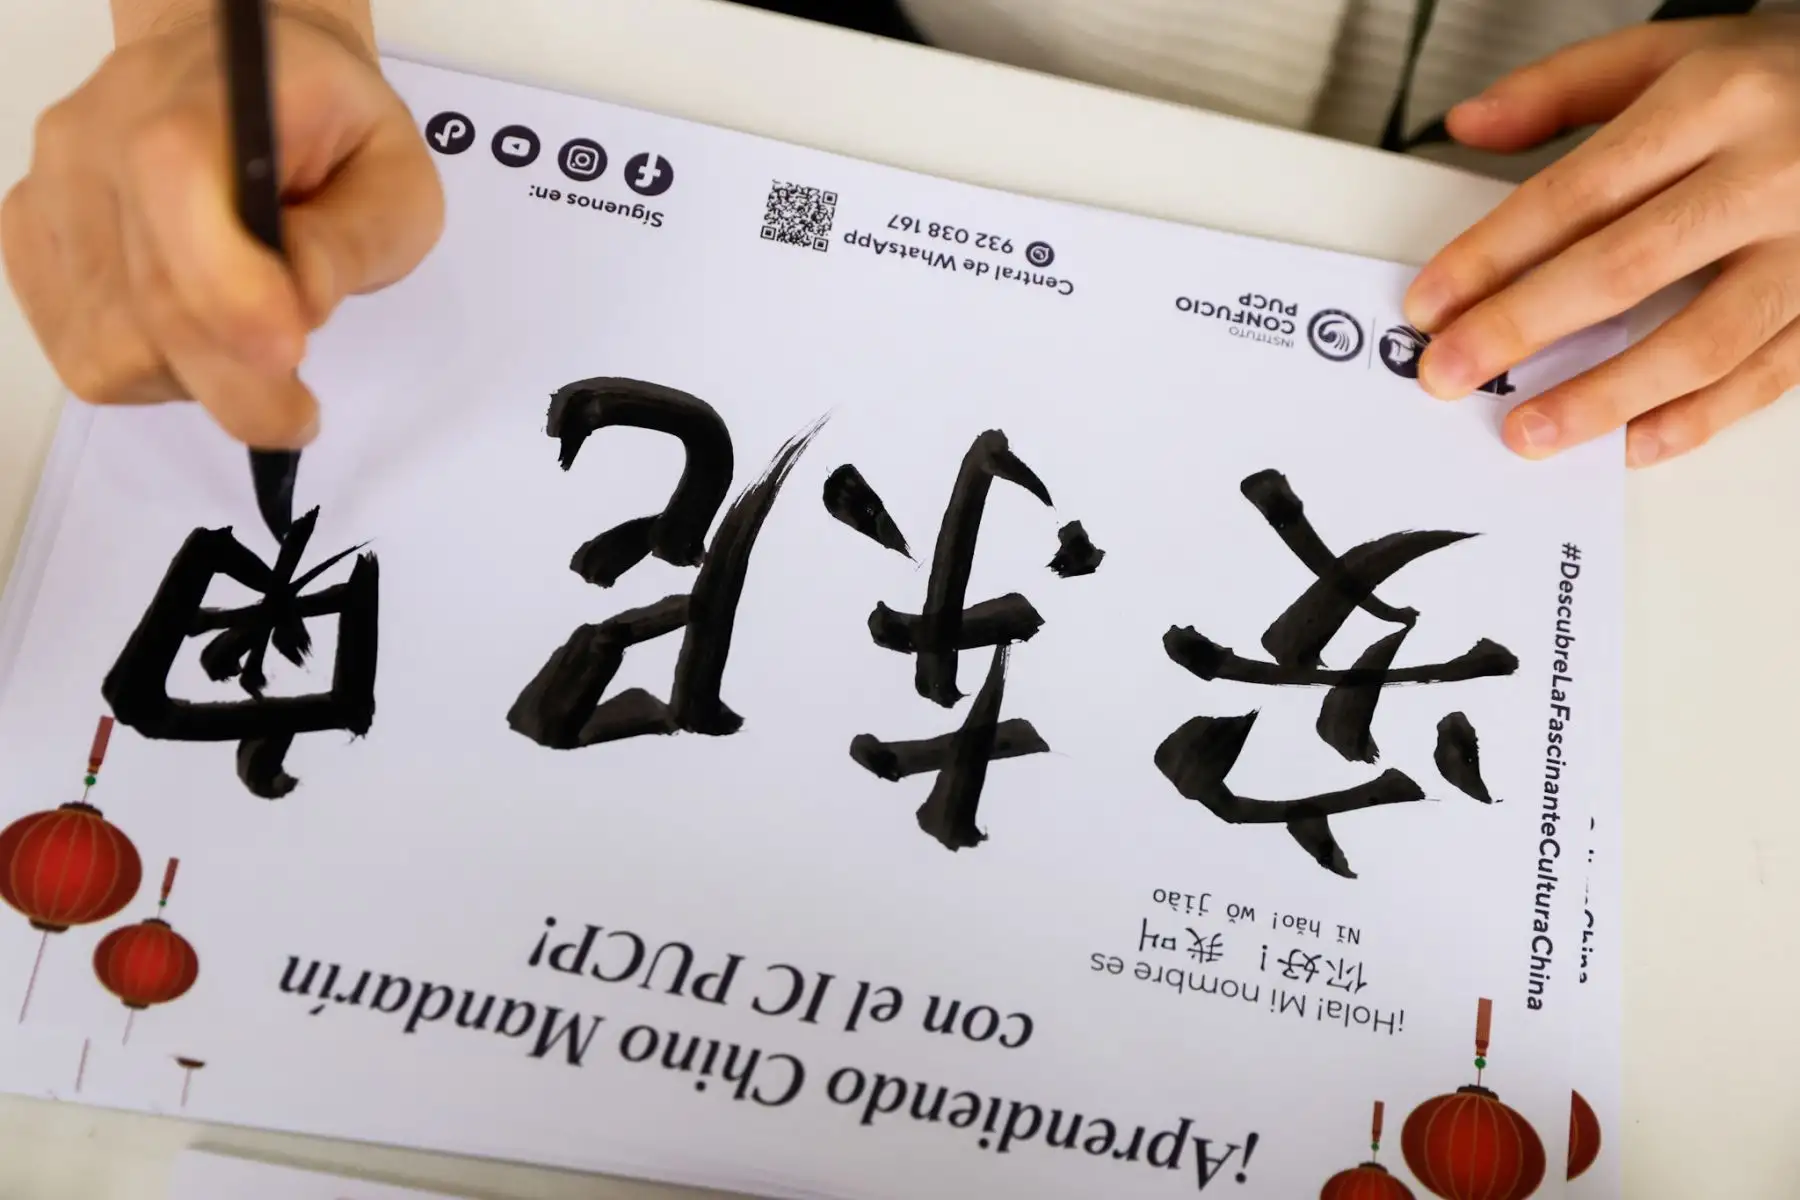 ¡Aprendiendo Chino Mandarín
con el IC PUCP!
¡Hola! Mi nombre es
你好！我叫
Nǐ hǎo! wǒ jiào
安东尼奥
#DescubreLaFascinanteCulturaChina
INSTITUTO
CONFUCIO
PUCP
Central de WhatsApp
932 038 167
Síguenos en: